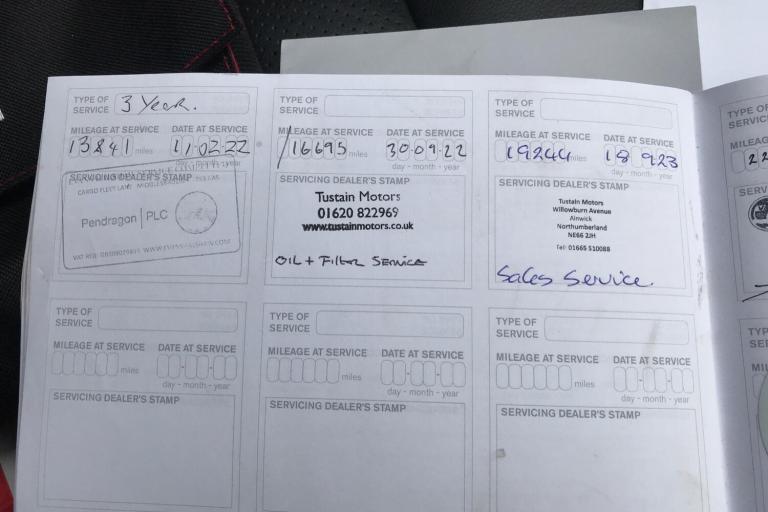 TYPE OF SERVICE 3 Year.
MILEAGE AT SERVICE DATE AT SERVICE
13841 miles 11.02.22
day - month - year
SERVICING DEALER'S STAMP
CARGO FLEET LANE MIDDLESBROUGH
Pendragon PLC
TYPE OF SERVICE
MILEAGE AT SERVICE DATE AT SERVICE
16695 miles 30.09.22
day - month - year
SERVICING DEALER'S STAMP
Tustain Motors
01620 822969
www.tustainmotors.co.uk
OIL + Filter Service
TYPE OF SERVICE
MILEAGE AT SERVICE DATE AT SERVICE
19244 miles 18 923
day - month - year
SERVICING DEALER'S STAMP
Tustain Motors
Willowburn Avenue
Alnwick
Northumberland
NE66 2JH
Tel: 01665 510088
Sales Service.
TYPE OF SERVICE
MILEAGE AT SERVICE DATE AT SERVICE
miles
day - month - year
SERVICING DEALER'S STAMP
TYPE OF SERVICE
MILEAGE AT SERVICE DATE AT SERVICE
miles
day - month - year
SERVICING DEALER'S STAMP
TYPE OF SERVICE
MILEAGE AT SERVICE DATE AT SERVICE
miles
day - month - year
SERVICING DEALER'S STAMP
TYPE OF